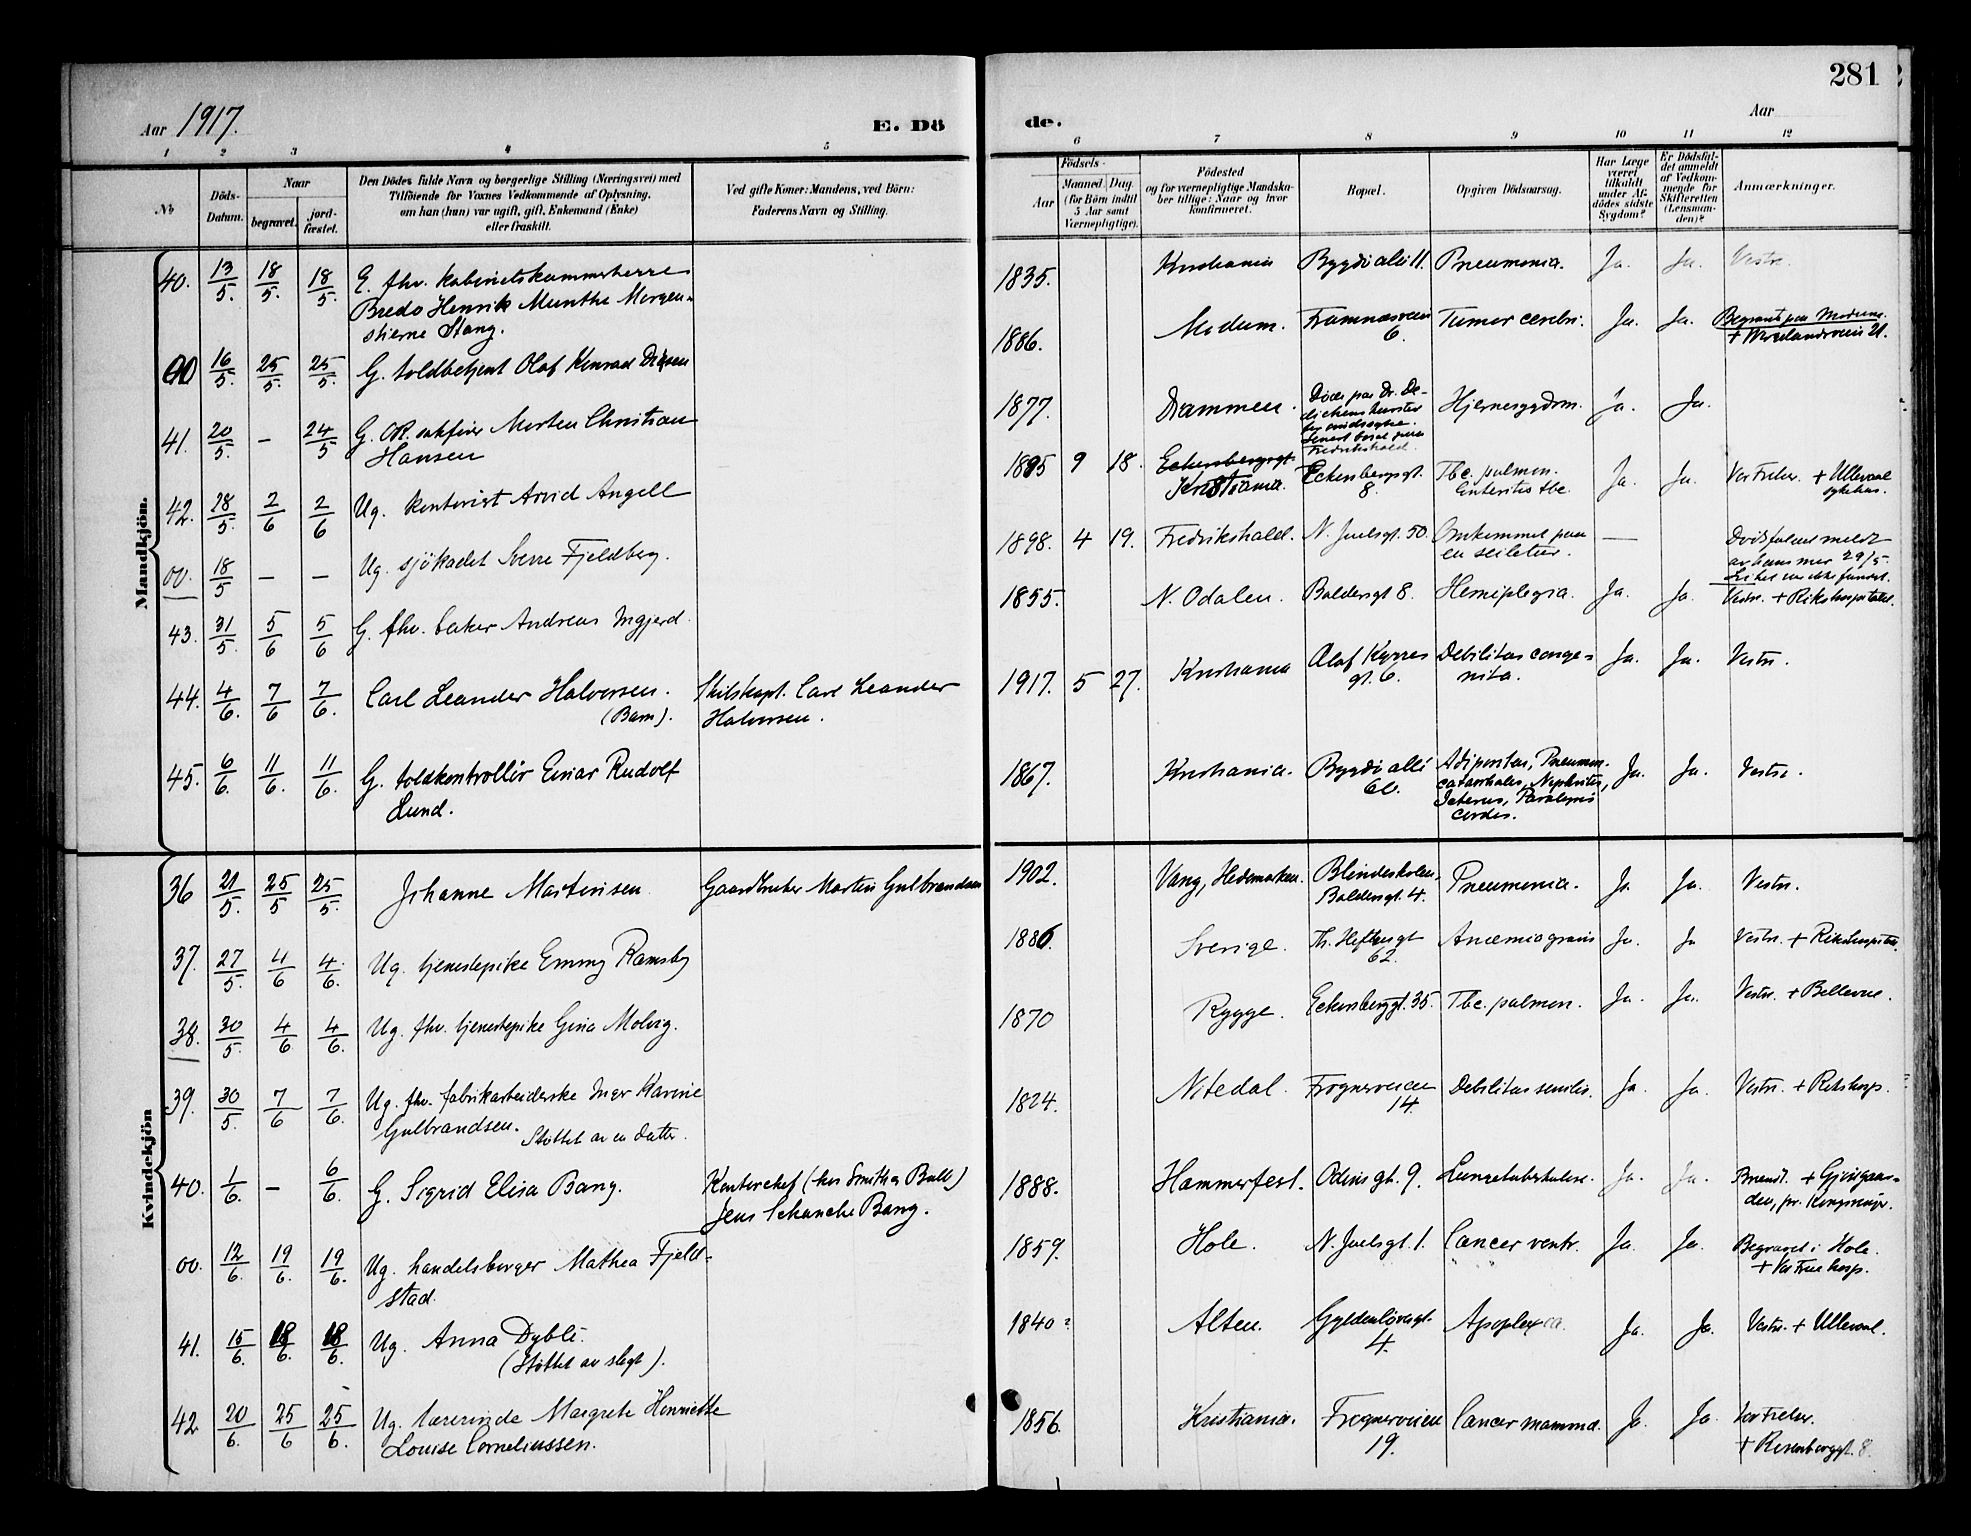 281
Aar 1917.
E. Dö
de.
Aar
1 2 3 4 5
6 7 8 9 10 11 12
No
Döds-Datum.
Naar
begravet.
jord-fæstet.
Den Dödes fulde Navn og borgerlige Stilling (Næringsvei) med
Tilföiende for Voxnes Vedkommende af Oplysning,
om han (hun) var ugift, gift, Enkemand (Enke)
eller fraskilt.
Ved gifte Koner: Mandens, ved Börn:
Faderens Navn og Stilling.
Födsels-
Aar
Maaned. Dag.
(for Börn indtil
5 Aar samt
Værnepligtige).
Födested
og for værnepligtige Mandska-
ber tillige: Naar og hvor
konfirmeret.
Bopæl.
Opgiven Dödsaarsag.
Har Læge
været
tilkaldt
under Af-
dödes sidste
Sygdom?
Er Dödsfal-
det anmeldt
af Vedkom-
mende for
Skifteretten
(Lensman-
den)?
Anmærkninger.
Mandkjön.
40. 13/5. 18/5. 18/5. E. fhv. kabinetskammerherre
Bredo Henrik Munthe Morgen-
stierne Stang.
1835. Kristiania Bygdö allé 11. Pneumonia. Ja. Ja. Vestre.
00 16/5. 25/5. 25/5. G. toldbetjent Olaf Konrad
1886. Modum. Framnæsveien
6. Tumor cerebri. Ja. Ja. Begravet paa Modum.
41. 20/5. – 24/5 G. OR. sakfører Morten Christian
Hansen
1877. Drammen. Döde paa Dr. De-
dichens
Fredrikshald Hjernesygdom. Ja. Ja.
42. 28/5. 2/6 2/6 Ug. kontorist Arvid Angell
1895 9 18. Eckersbergsgt.
Kristiania. Eckersbergsgt.
8. Tbc. pulmon.
Enteritis tbc. Ja. Ja. Vor Frelser. + Ullevaal
sykehus.
00. 18/5 – – Ug. sjökadet Sverre Fjeldberg.
1898. 4 19. Fredrikshald. N. Juelsgt. 50. Omkommet paa
en seiletur. — Dödsfaldet meldt
av hans mor 29/5.
Liket er ikke fundet.
43. 31/5. 5/6 5/6 G. fhv. baker Andreas Ingjerd.
1855. N. Odalen. Baldersgt 8. Hemiplegia. Ja. Ja. Vestre. + Rikshospitalet.
44. 4/6. 7/6 7/6. Carl Leander Halvorsen.
(Barn). Skibskapt. Carl Leander
Halvorsen.
1917. 5 27. Kristiania Olaf Kyrres
gt. 6. Debilitas conge-
nita. Ja. Ja. Vestre.
45. 6/6. 11/6. 11/6. G. toldkontrollör Einar Rudolf
Lund.
1867. Kristiania. Bygdö allé
60. Adipositas, Pneumon.
catarrhalis, Nephritis,
Icterus, Paralysis
cordis. Ja. Ja. Vestre.
Kvindekjön
36 21/5. 25/5 25/5. Johanne Martinsen. Gaardbruker Martin Gulbrandsen
1902. Vang, Hedemarken. Blindeskolen,
Baldersgt. 4. Pneumonia. Ja Ja. Vestre.
37. 27/5. 4/6 4/6. Ug. tjenestepike Emmy Ramsby
1886. Sverige. Th. Heftyesgt
62. Anæmia gravis Ja. Ja Vestre. + Rikshospitalet.
38. 30/5. 4/6 4/6. Ug. fhv. tjenestepike Gina Molvig.
1870 Rygge. Eckersbergsgt. 35. Tbc. pulmon. Ja. Ja. Vestre. + Bellevue.
39. 30/5. 7/6 7/6. Ug. fhv. fabrikarbeiderske Inger Karine
Gulbrandsen. Støttet av en datter.
1824. Nitedal. Frognerveien
14. Debilitas senilis. Ja. Ja. Vestre. + Rikshosp.
40. 1/6. – 6/6. G. Sigrid Elisa Bang. Kontorchef (hos Smith & Bull)
Jens Schanche Bang.
1888. Hammerfest. Odins gt. 9. Lungetuberkulose. Ja. Ja. Brændt.
00. 12/6. 19/6. 19/6. Ug. handelsborger Mathea Fjeld-
stad.
1859. Hole. N. Juelsgt. 1. Cancer ventr. Ja. Ja. Begravet i Hole.
+ Vor Frue hosp.
41. 15/6. 18/6. 18/6. Ug. Anna Dybli.
(Støttet av slegt).
1840 Alten. Gyldenløvesgt.
4. Apoplexia. Ja. Ja. Vestre. + Ullevaal.
42 20/6. 25/6 25/6. Ug. lærerinde Margrete Henriette
Louise Corneliussen.
1856. Kristiania. Frognerveien
19. Cancer mammæ. Ja. Ja. Vor Frelser.
+ Rosenborggt. 8.